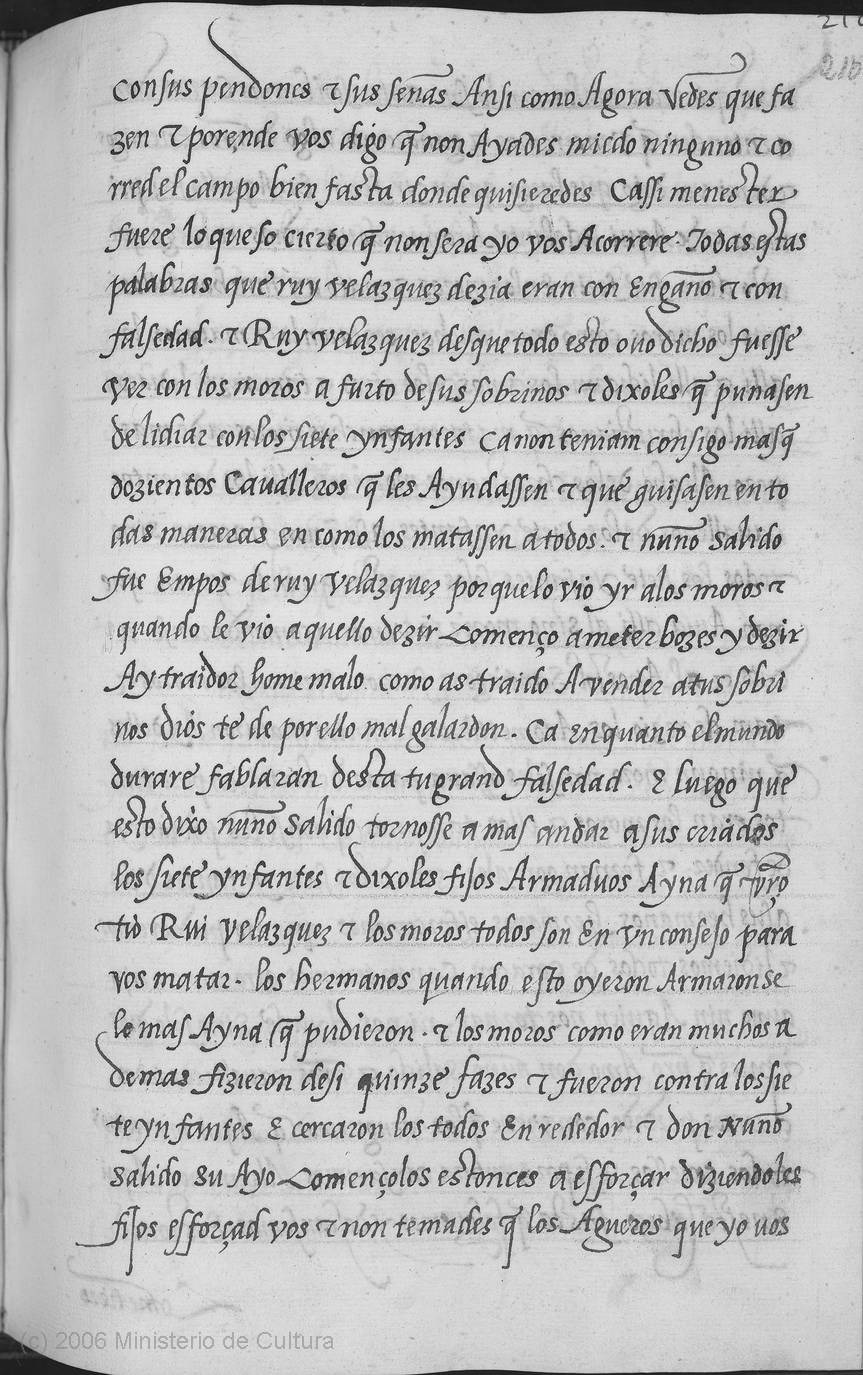 218
216
con sus pendones ⁊ sus señas Ansi como Agora vedes que fa
zen ⁊ porende vos digo q̃ non Ayades miedo ninguno ⁊ co
rred el campo bien fasta donde quisieredes Ca ssi menester
fuere lo que so cierto q̃ non sera yo vos Acorrere. Todas estas
palabras que ruy velazquez dezia eran con Engaño ⁊ con
falsedad. ⁊ Ruy velazquez desque todo esto ouo dicho fuesse
ver con los moros a furto de sus sobrinos ⁊ dixoles q̃ punasen
de lidiar con los siete ynfantes Ca non teniam consigo mas q̃
dozientos Cavalleros q̃ les Ayudassen ⁊ que guisasen en to
das maneras en como los matassen a todos. ⁊ nuño salido
fue Empos de ruy velazquez porque lo vio yr a los moros ⁊
quando le vio aquello dezir Començo a meter bozes y dezir
Ay traidor home malo como as traido A vender a tus sobri
nos dios te de por ello mal galardon. Ca En quanto el mundo
durare fablaran desta tu grand falsedad. E luego que
esto dixo nuño Salido tornosse a mas andar a sus criados
los siete ynfantes ⁊ dixoles fijos Armaduos Ayna q̃ vr̃o
tio Rui velazquez ⁊ los moros todos son En vn consejo para
vos matar. los hermanos quando esto oyeron Armaronse
lo mas Ayna q̃ pudieron. ⁊ los moros como eran muchos a
demas fizieron desi quinze fazes ⁊ fueron contra los sie
te ynfantes E cercaron los todos En rededor ⁊ don Nuño
salido su Ayo Començolos estonces a esforçar diziendoles
fijos esforçad vos ⁊ non temades q̃ los Agueros que yo vos
(c) 2006 Ministerio de Cultura